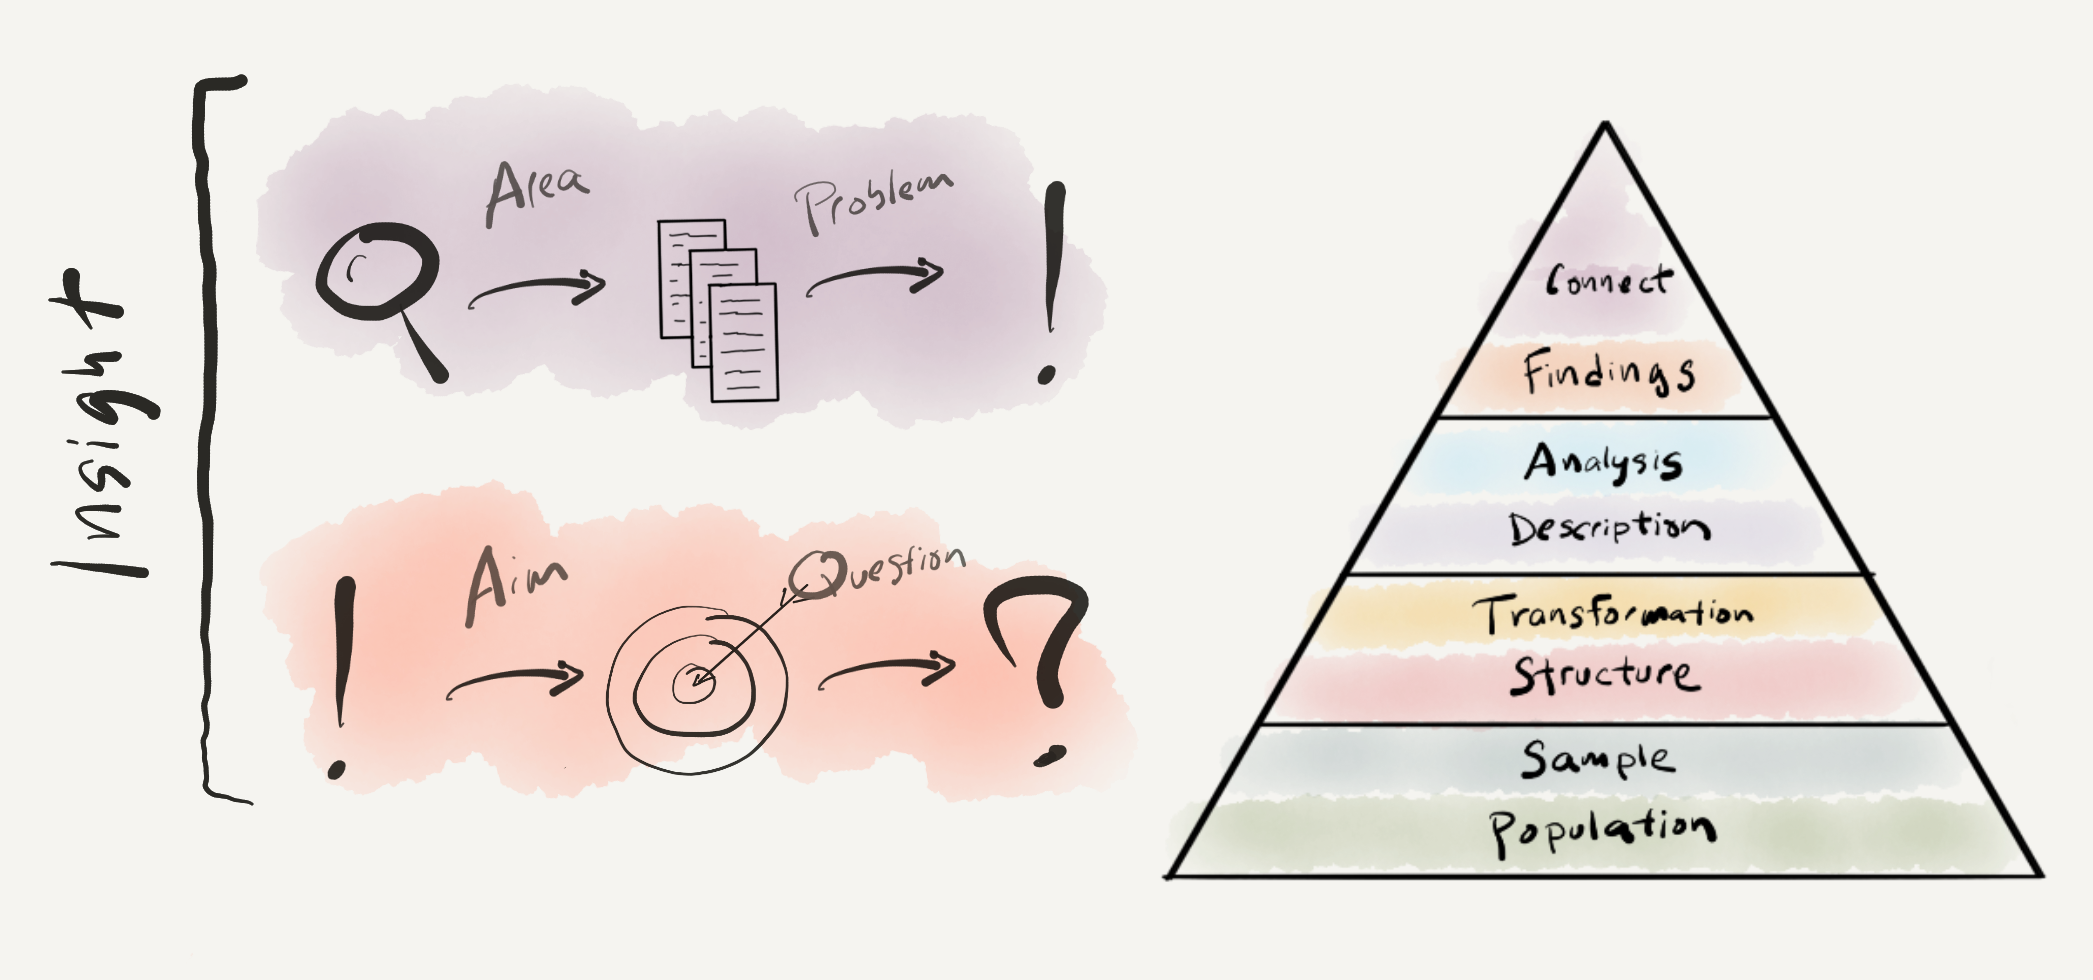 Insight
Area
Problem
Aim
Question
Connect
Findings
Analysis
Description
Transformation
Structure
Sample
Population